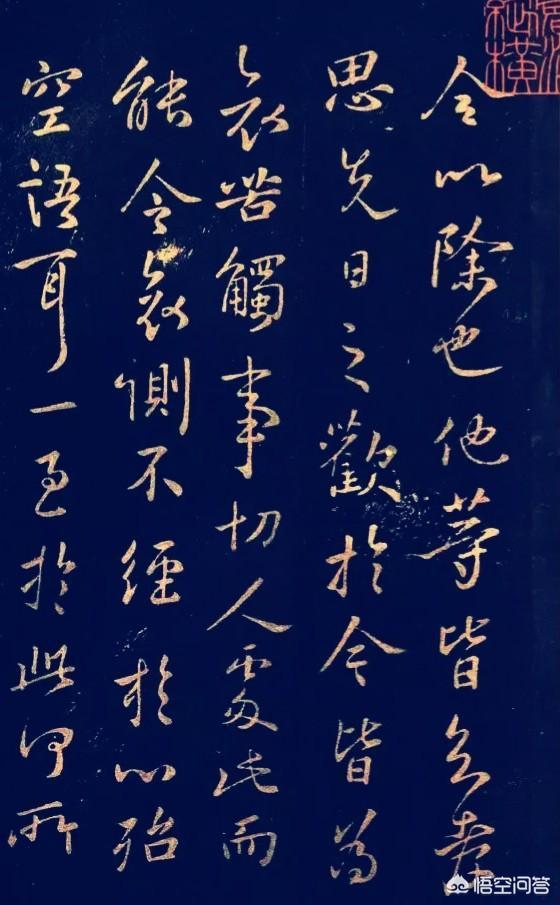 令以除也他等皆
思先日之歡於今皆為
哀苦觸事切人處此而
能令哀惻不經於心殆
空語耳一至於此何所
悟空问答